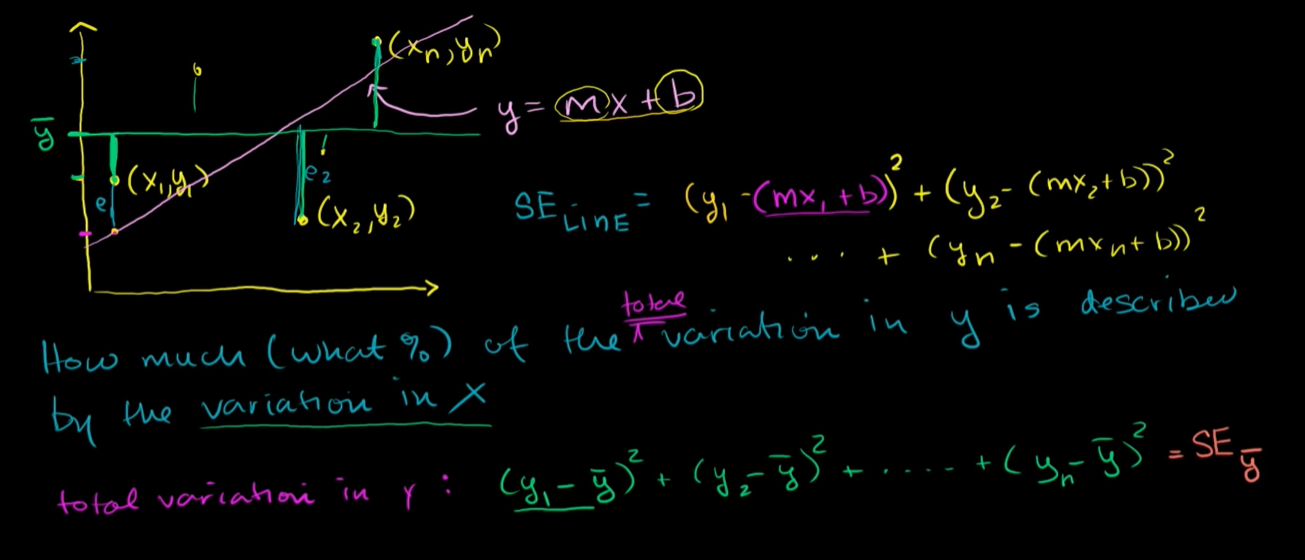 (xₙ, yₙ)
y = mx + b
ȳ
(x₁, y₁)
e₁
e₂
(x₂, y₂)
SE LINE = (y₁ - (mx₁ + b))² + (y₂ - (mx₂ + b))²
.... + (yₙ - (mxₙ + b))²
total
How much (what %) of the variation in y is described
by the variation in x
total variation in y : (y₁ - ȳ)² + (y₂ - ȳ)² + ..... + (yₙ - ȳ)² = SE ȳ